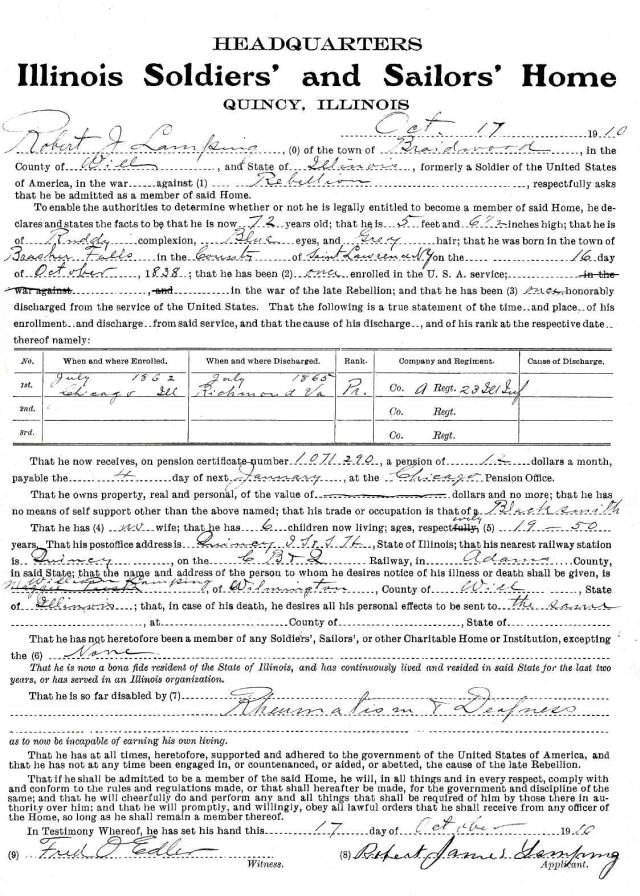 HEADQUARTERS
Illinois Soldiers' and Sailors' Home
QUINCY, ILLINOIS
Oct. 17 1910
Robert J Lamping, (0) of the town of Braidwood, in the
County of Will, and State of Illinois, formerly a Soldier of the United States
of America, in the war against (1) Rebellion, respectfully asks
that he be admitted as a member of said Home.
To enable the authorities to determine whether or not he is legally entitled to become a member of said Home, he de-
clares and states the facts to be that he is now 72 years old; that he is 5 feet and 6 1/2 inches high; that he is
of Ruddy complexion, Blue eyes, and Grey hair; that he was born in the town of
Brasher Falls in the County of Saint Lawrence NY on the 16 day
of October, 1838; that he has been (2) once enrolled in the U. S. A. service; in the
war against, and in the war of the late Rebellion; and that he has been (3) once honorably
discharged from the service of the United States. That the following is a true statement of the time and place of his
enrollment and discharge from said service, and that the cause of his discharge, and of his rank at the respective date
thereof namely:
No. When and where Enrolled. When and where Discharged. Rank. Company and Regiment. Cause of Discharge.
1st. July 1862 July 1865
Chicago Ill Richmond Va Pr. Co. A Regt. 23 Ill Inf
2nd. Co. Regt.
3rd. Co. Regt.
That he now receives, on pension certificate number 1071290, a pension of 12 dollars a month,
payable the 4 day of next January, at the Chicago Pension Office.
That he owns property, real and personal, of the value of dollars and no more; that he has
no means of self support other than the above named; that his trade or occupation is that of a Blacksmith
That he has (4) no wife; that he has 6 children now living; ages, respectively (5) 19 - 50
years. That his postoffice address is Quincy I. S. & S. H., State of Illinois; that his nearest railway station
is Quincy, on the C B & Q Railway, in Adams County,
in said State; that the name and address of the person to whom he desires notice of his illness or death shall be given, is
William Lamping, of Wilmington, County of Will, State
of Illinois; that, in case of his death, he desires all his personal effects to be sent to the same
, at County of , State of
That he has not heretofore been a member of any Soldiers', Sailors', or other Charitable Home or Institution, excepting
the (6) None
That he is now a bona fide resident of the State of Illinois, and has continuously lived and resided in said State for the last two
years, or has served in an Illinois organization.
That he is so far disabled by (7)
Rheumatism & Deafness
as to now be incapable of earning his own living.
That he has at all times, heretofore, supported and adhered to the government of the United States of America, and
that he has not at any time been engaged in, or countenanced, or aided, or abetted, the cause of the late Rebellion.
That if he shall be admitted to be a member of the said Home, he will, in all things and in every respect, comply with
and conform to the rules and regulations made, or that shall hereafter be made, for the government and discipline of the
same; and that he will cheerfully do and perform any and all things that shall be required of him by those there in au-
thority over him; and that he will promptly, and willingly, obey all lawful orders that he shall receive from any officer of
the Home, so long as he shall remain a member thereof.
In Testimony Whereof, he has set his hand this 17 day of October 1910
(9) Fred O Edler (8) Robert James Lamping
Witness. Applicant.